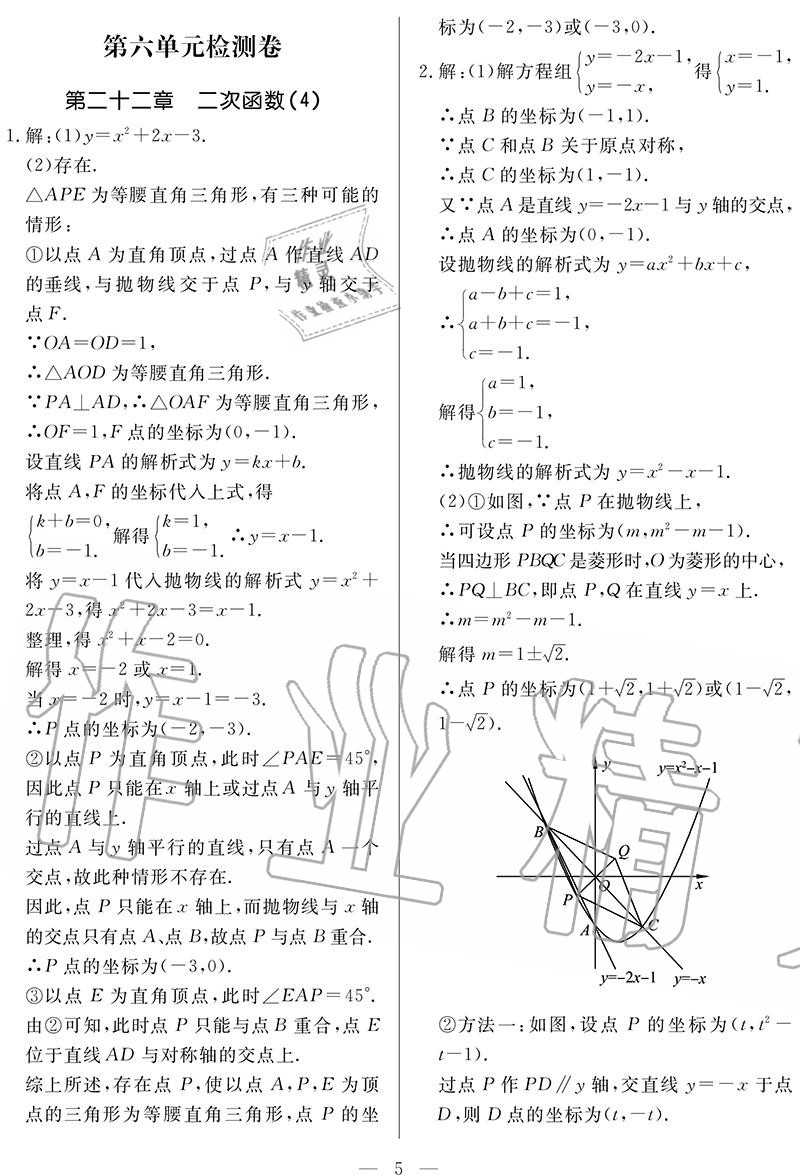 第六单元检测卷
第二十二章　二次函数(4)
1.解:(1)y=x²+2x-3.
(2)存在.
△APE 为等腰直角三角形,有三种可能的
情形:
①以点 A 为直角顶点,过点 A 作直线 AD
的垂线,与抛物线交于点 P,与 y 轴交于
点 F.
∵OA=OD=1,
∴△AOD 为等腰直角三角形.
∵PA⊥AD,∴△OAF 为等腰直角三角形,
∴OF=1,F 点的坐标为(0,-1).
设直线 PA 的解析式为 y=kx+b.
将点 A,F 的坐标代入上式,得
{k+b=0, b=-1. 解得{k=1, b=-1. ∴y=x-1.
将 y=x-1 代入抛物线的解析式 y=x²+
2x-3,得 x²+2x-3=x-1.
整理,得 x²+x-2=0.
解得 x=-2 或 x=1.
当 x=-2 时,y=x-1=-3.
∴P 点的坐标为(-2,-3).
②以点 P 为直角顶点,此时∠PAE=45°,
因此点 P 只能在 x 轴上或过点 A 与 y 轴平
行的直线上.
过点 A 与 y 轴平行的直线,只有点 A 一个
交点,故此种情形不存在.
因此,点 P 只能在 x 轴上,而抛物线与 x 轴
的交点只有点 A、点 B,故点 P 与点 B 重合.
∴P 点的坐标为(-3,0).
③以点 E 为直角顶点,此时∠EAP=45°.
由②可知,此时点 P 只能与点 B 重合,点 E
位于直线 AD 与对称轴的交点上.
综上所述,存在点 P,使以点 A,P,E 为顶
点的三角形为等腰直角三角形,点 P 的坐
标为(-2,-3)或(-3,0).
2.解:(1)解方程组{y=-2x-1, y=-x, 得{x=-1, y=1.
∴点 B 的坐标为(-1,1).
∵点 C 和点 B 关于原点对称,
∴点 C 的坐标为(1,-1).
又∵点 A 是直线 y=-2x-1 与 y 轴的交点,
∴点 A 的坐标为(0,-1).
设抛物线的解析式为 y=ax²+bx+c,
∴{a-b+c=1, a+b+c=-1, c=-1.
解得{a=1, b=-1, c=-1.
∴抛物线的解析式为 y=x²-x-1.
(2)①如图,∵点 P 在抛物线上,
∴可设点 P 的坐标为(m,m²-m-1).
当四边形 PBQC 是菱形时,O 为菱形的中心,
∴PQ⊥BC,即点 P,Q 在直线 y=x 上.
∴m=m²-m-1.
解得 m=1±√2.
∴点 P 的坐标为(1+√2,1+√2)或(1-√2,
1-√2).
y
y=x²-x-1
B
Q
O
x
P
A
C
y=-2x-1
y=-x
②方法一:如图,设点 P 的坐标为(t,t²-
t-1).
过点 P 作 PD∥y 轴,交直线 y=-x 于点
D,则 D 点的坐标为(t,-t).
— 5 —
作业精